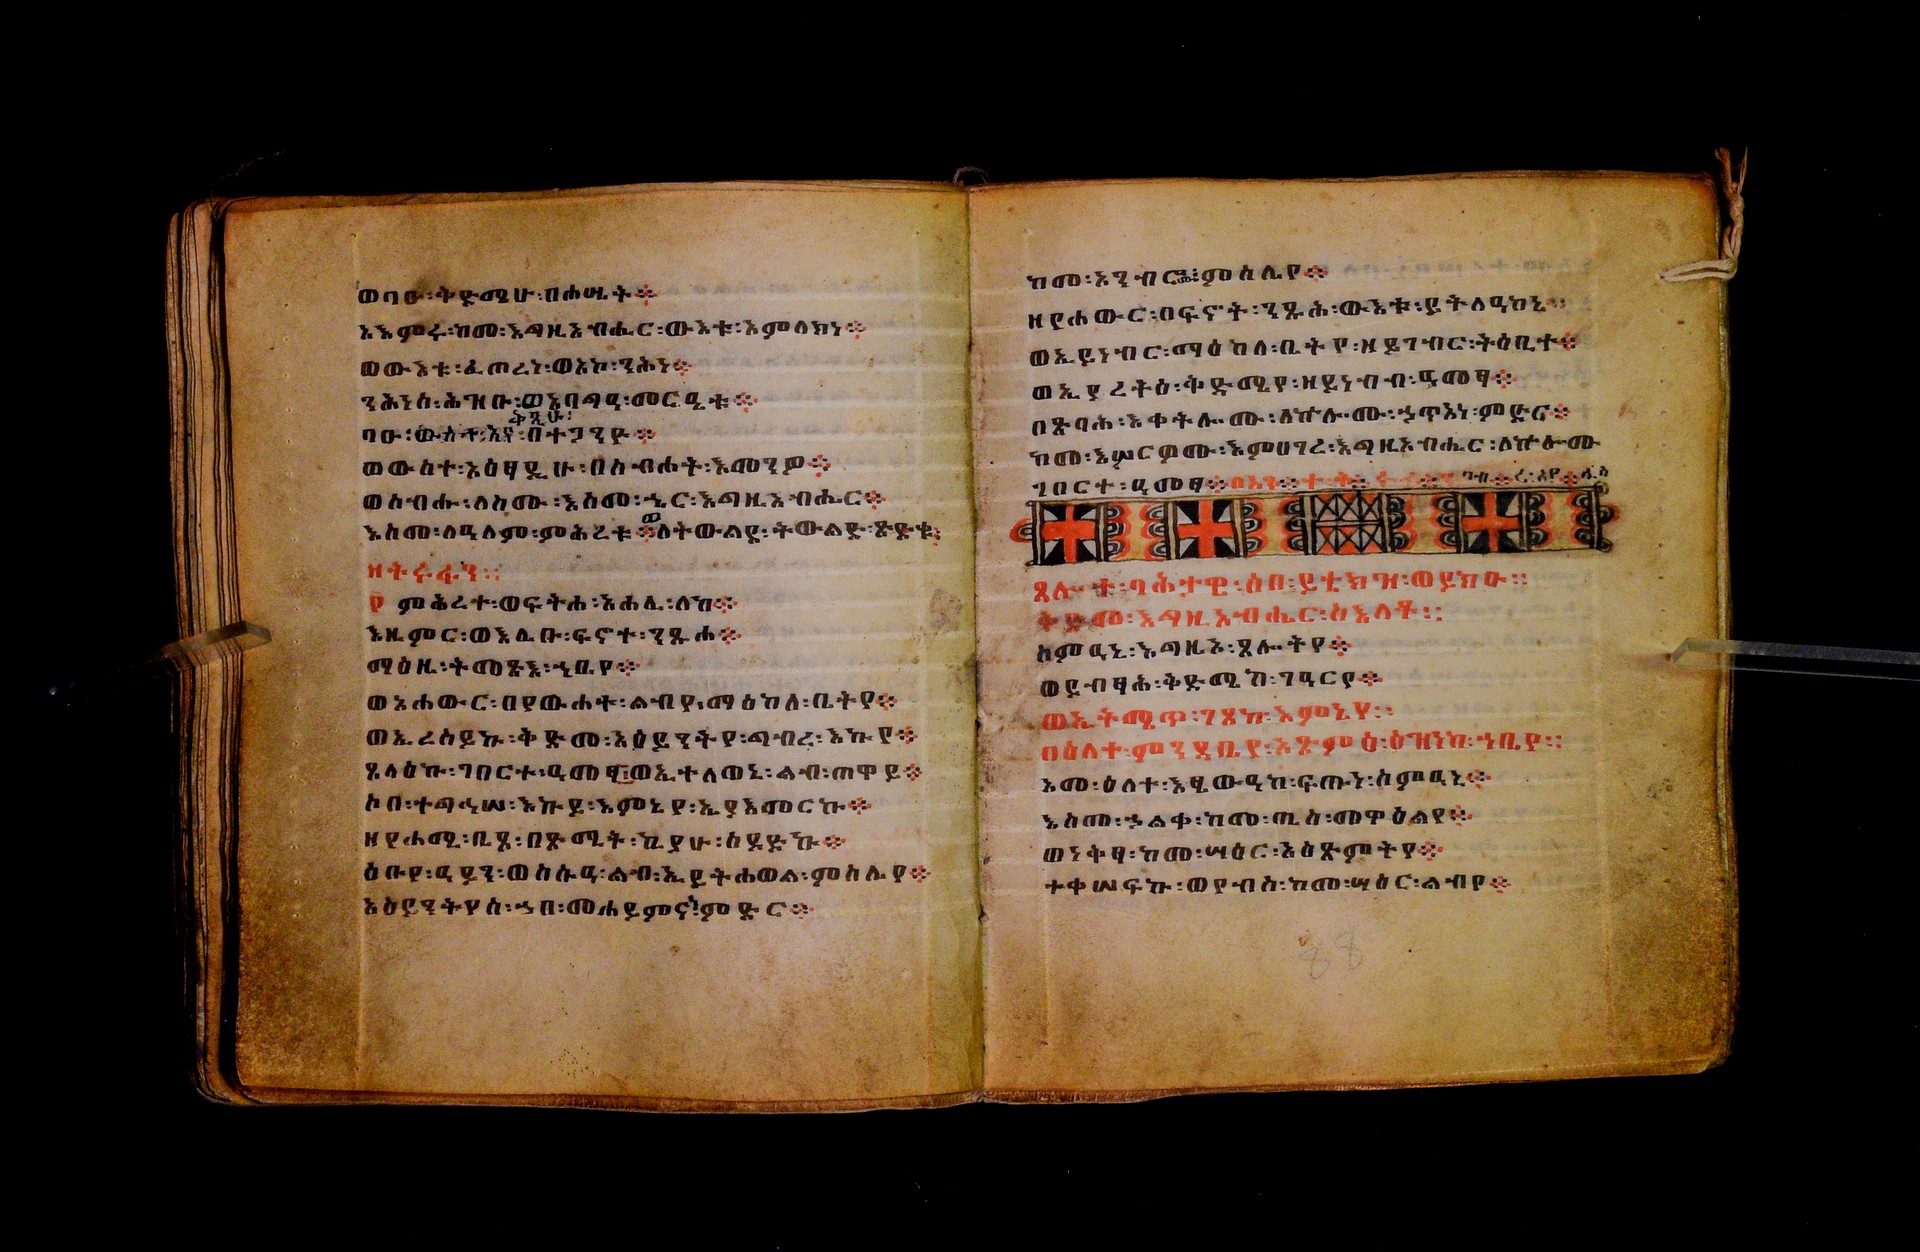 ወባኡ፡ቅድሜሁ፡በሐሤት፨
አእምሩ፡ከመ፡እግዚአብሔር፡ውእቱ፡አምላክነ፨
ወውእቱ፡ፈጠረነ፡ወአኮ፡ንሕነ፨
ንሕነሰ፡ሕዝቡ፡ወአባግዐ፡መርዔቱ፨
ባኡ፡ውስተ፡አናቅጺሁ፡በተጋንዮ፨
ወውስተ፡አዕፃዲሁ፡በስብሐት፡እመንዎ፨
ወስብሑ፡ለስሙ፡እስመ፡ኄር፡እግዚአብሔር፨
እስመ፡ለዓለም፡ምሕረቱ፨ወለትውልደ፡ትውልድ፡ጽድቁ፨
፻ ምሕረተ፡ወፍትሐ፡አሐሊ፡ለከ፨
እዜምር፡ወእሌቡ፡ፍኖተ፡ንጹሐ፨
ማዕዜ፡ትመጽእ፡ኀቤየ፨
ወአሐውር፡በየውሃተ፡ልብየ፡ማዕከለ፡ቤትየ፨
ወኢረሰይኩ፡ቅድመ፡አዕይንትየ፡ግብረ፡እኩየ፨
ጸላዕኩ፡ገበርተ፡ዓመፃ፡ወኢተለወኒ፡ልብ፡ጠዋይ፨
ሶበ፡ተግኅሠ፡እኩይ፡እምኔየ፡ኢያእመርኩ፨
ዘየሐሚ፡ቢጾ፡በጽሚት፡ኪያሁ፡ሰደድኩ፨
ዕቡየ፡ዓይን፡ወስሱዓ፡ልብ፡ኢይትሐወል፡ምስሌየ፨
አዕይንትየሰ፡ኀበ፡መሃይምናነ፡ምድር፨
ከመ፡አንብሮሙ፡ምስሌየ፨
ዘየሐውር፡በፍኖት፡ንጹሕ፡ውእቱ፡ይትለዓከኒ፨
ወኢይነብር፡ማዕከለ፡ቤትየ፡ዘይገብር፡ትዕቢተ፨
ወኢያረትዕ፡ቅድሜየ፡ዘይነብብ፡ዓመፃ፨
በጽባሕ፡እቀትሎሙ፡ለኵሎሙ፡ኃጥአነ፡ምድር፨
ከመ፡እሠርዎሙ፡እምሀገረ፡እግዚአብሔር፡ለኵሎሙ
ገበርተ፡ዓመፃ፨
ጸሎተ፡ባሕታዊ፡ሶበ፡ይቴክዝ፡ወይክዑ፡፡
ቅድመ፡እግዚአብሔር፡ስእለቶ፡፡
ስምዓኒ፡እግዚኦ፡ጸሎትየ፨
ወይብፃሕ፡ቅድሜከ፡ገዓርየ፨
ወኢትሚጥ፡ገጸከ፡እምኔየ፡፡
በዕለተ፡ምንዳቤየ፡አጽምዕ፡ዕዝነከ፡ኀቤየ፡፡
አመ፡ዕለተ፡እፄውዓከ፡ፍጡነ፡ስምዓኒ፨
እስመ፡ኃልቀ፡ከመ፡ጢስ፡መዋዕልየ፨
ወነቅፃ፡ከመ፡ሣዕር፡አዕጽምትየ፨
ተቀሠፍኩ፡ወየብሰ፡ከመ፡ሣዕር፡ልብየ፨
88